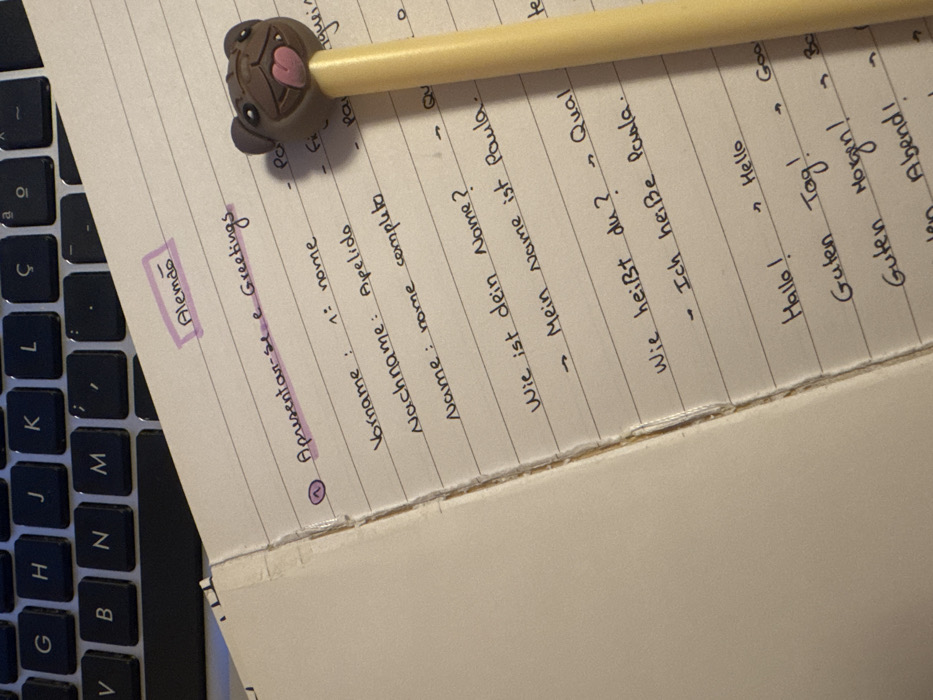 Alemão
1 Apresentar-se e Greetings
Vorname: 1º nome
Nachname: Apelido
Name: nome completo
Wie ist dein Name? → Qu
→ Mein Name ist Paula.
Wie heißt du? → Qual
→ Ich heiße Paula.
Hallo! → Hello
Guten Tag! → Goo
Guten Morgen! →
Abend! →
~
ª º
Ç
L
K
J
H
G
M
N
B
V